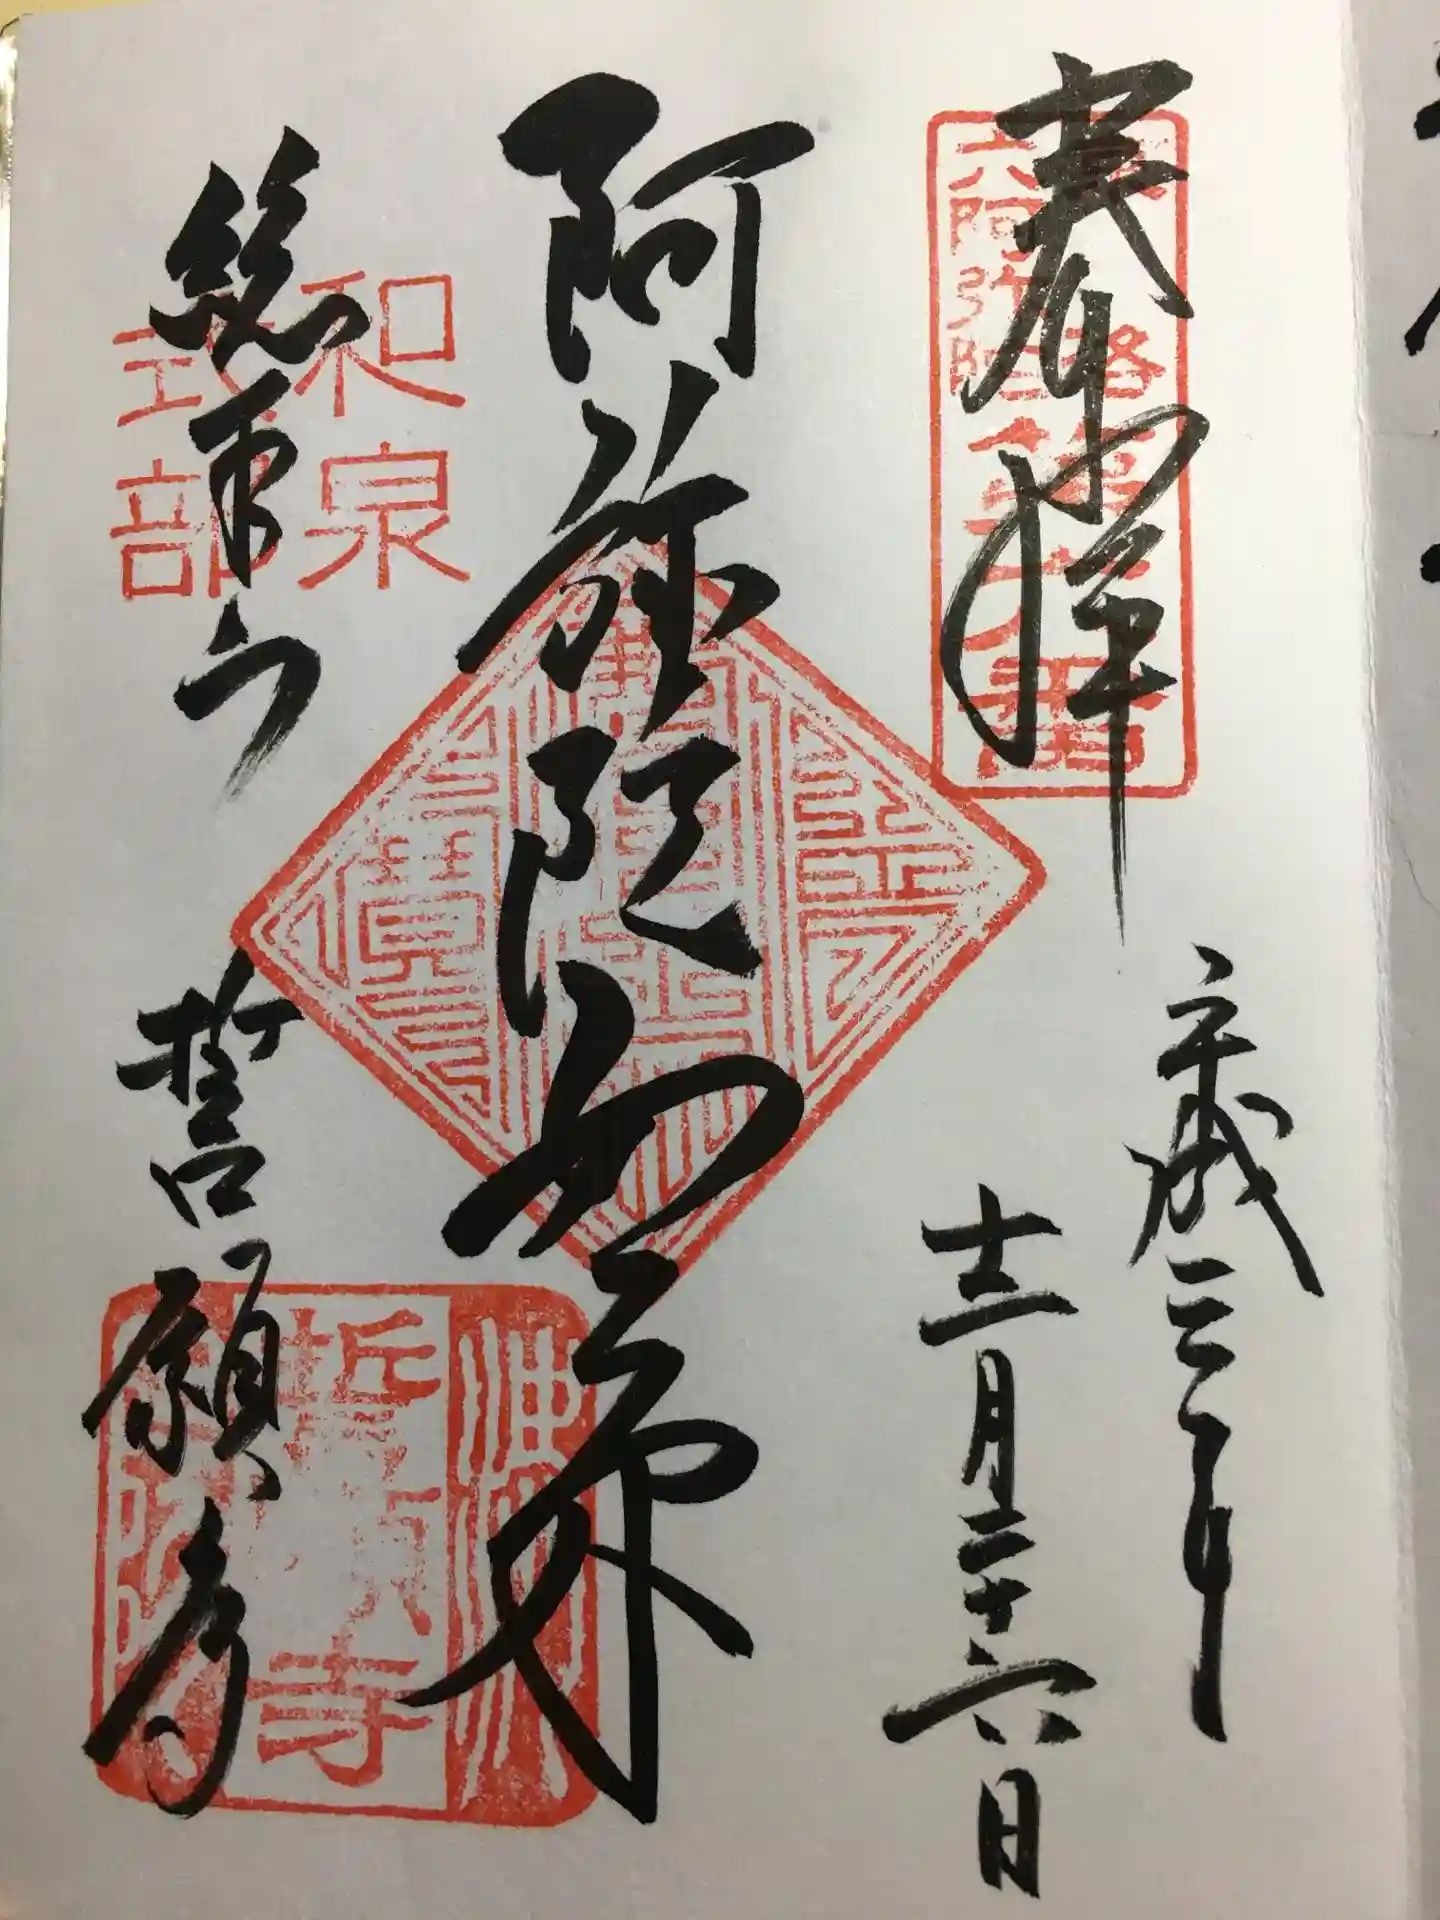 奉拝
平成三十年
十二月二十六日
阿弥陀如来
総本山
誓願寺
和泉
式部
誓願寺